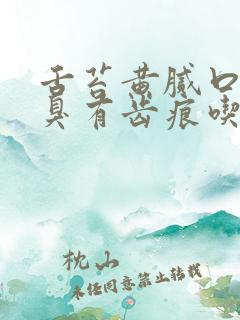 舌苔黄腻口
臭有齿痕喫
枕山
未经同意禁止转载